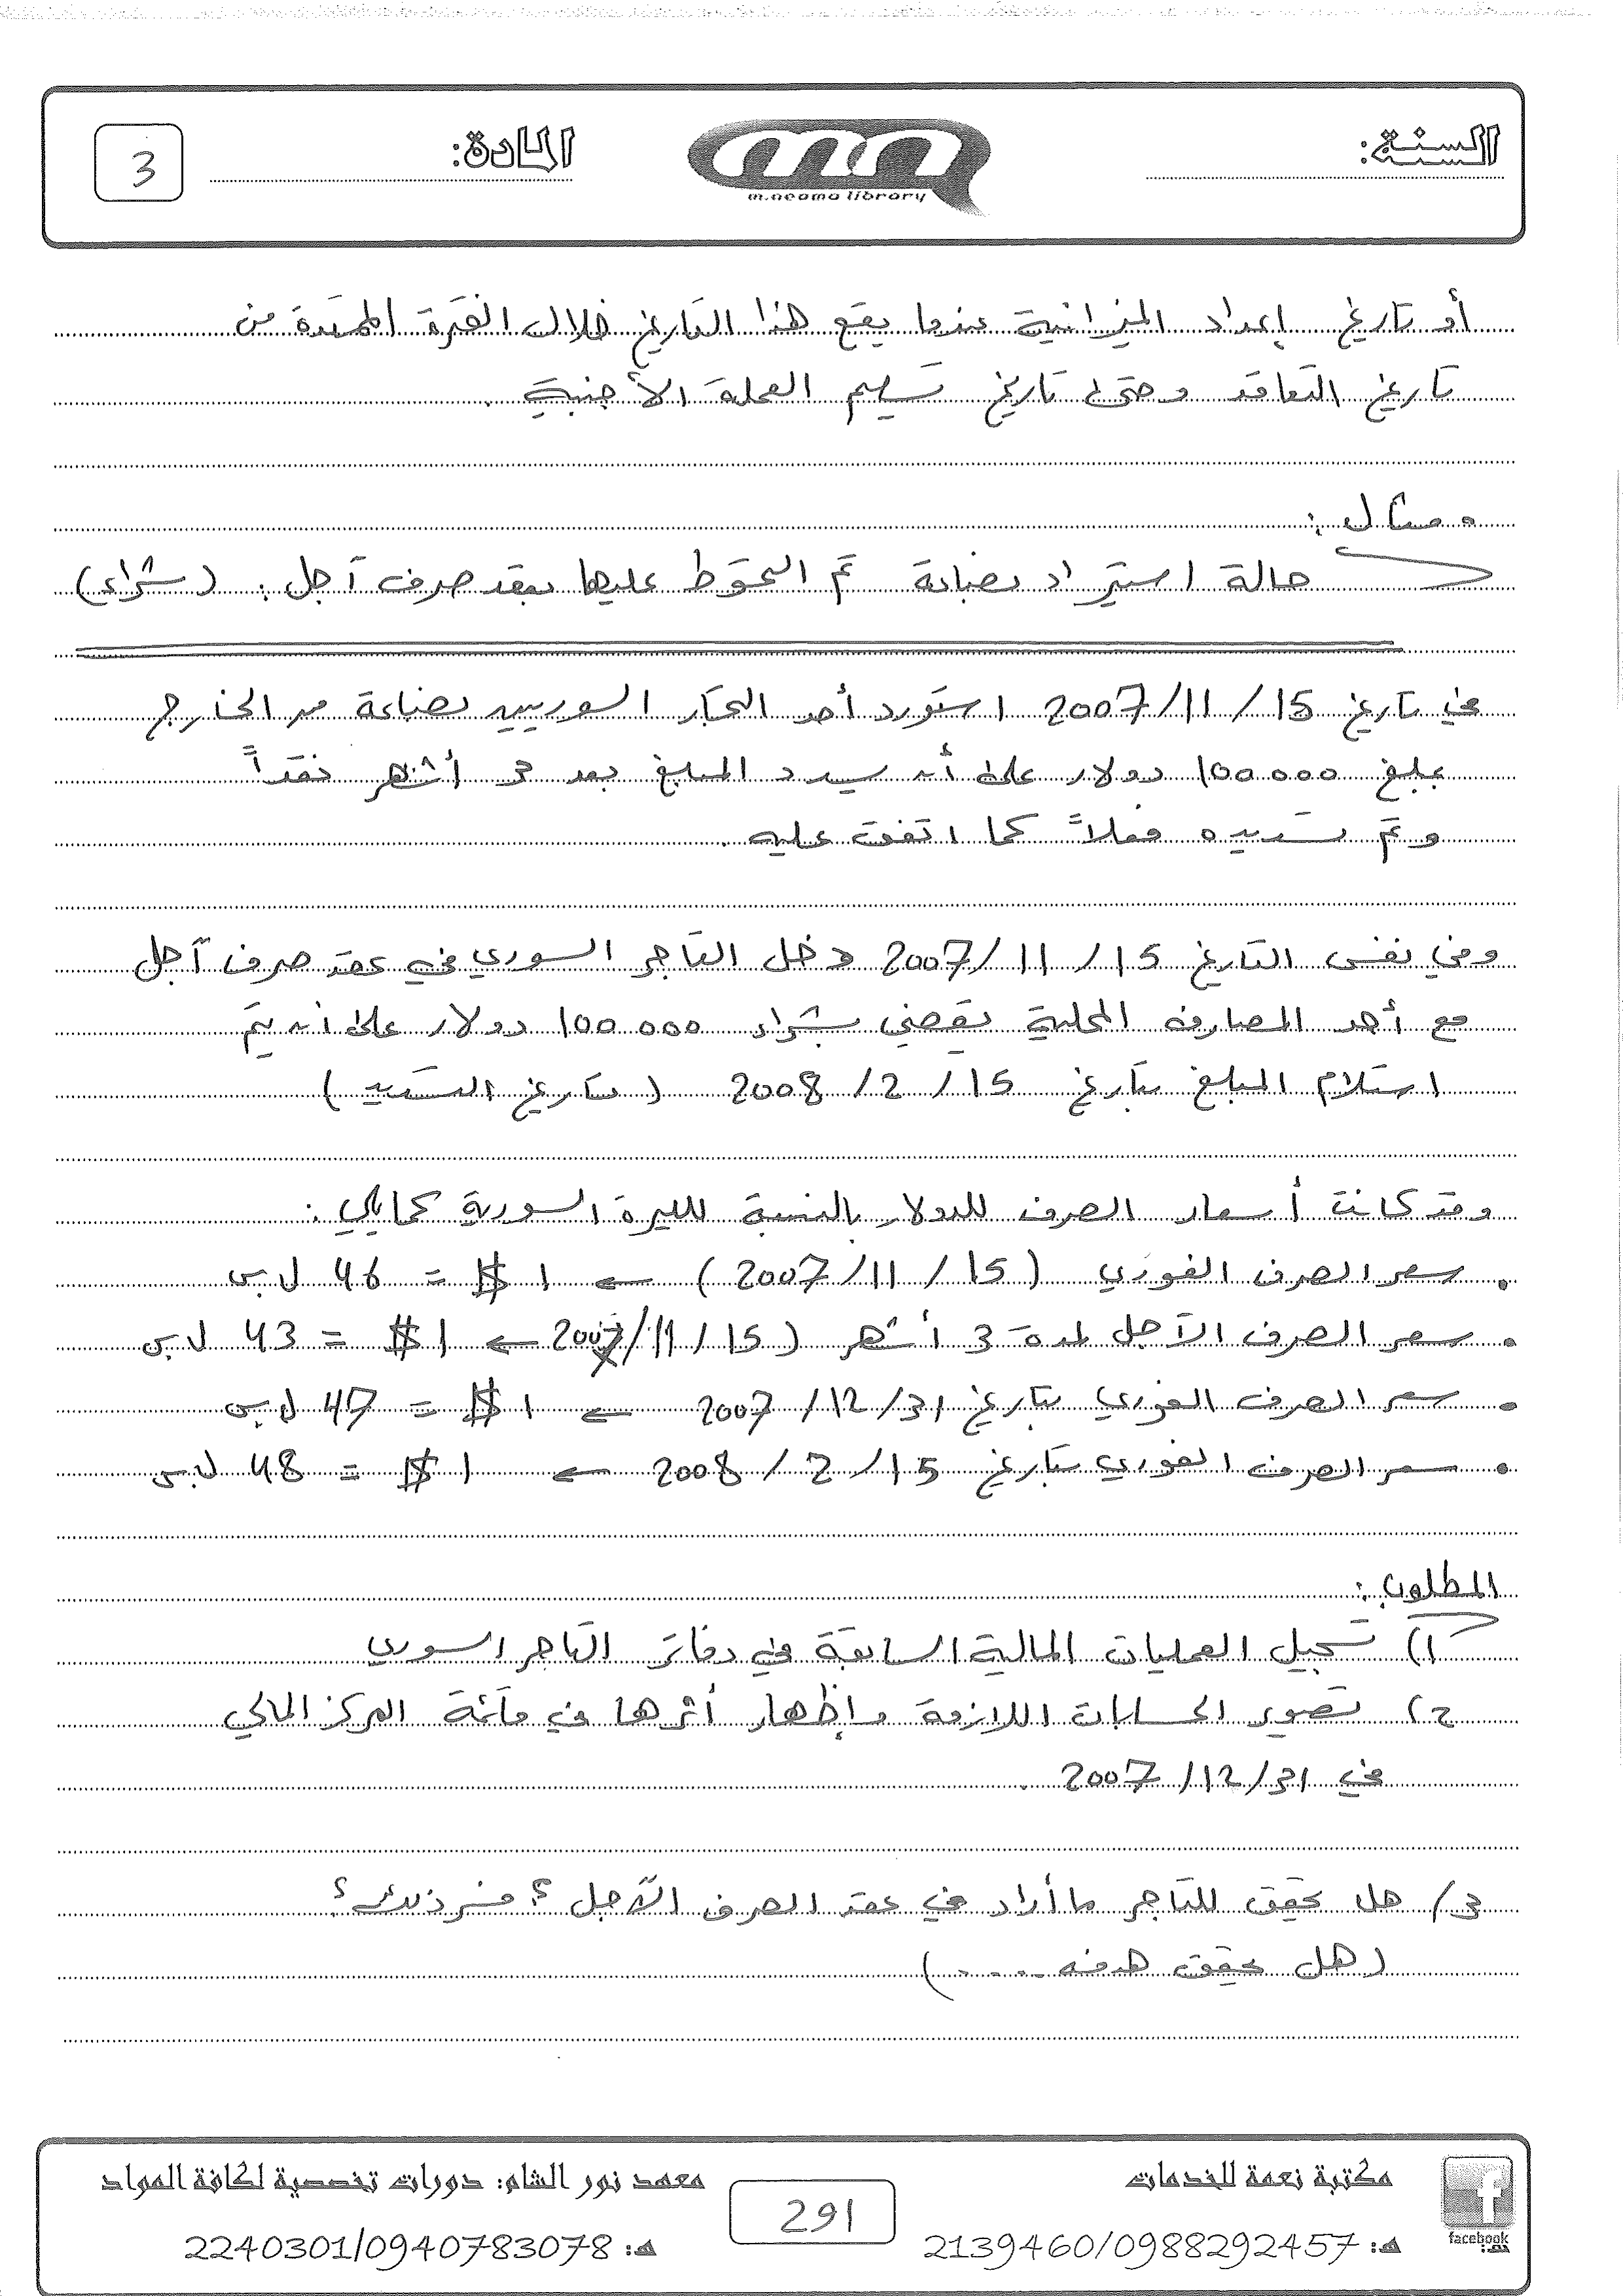 السنة:
m.neama library
المادة:
3
أو تاريخ إعداد الميزانية عندما يقع هذا التاريخ خلال الفترة الممتدة من
تاريخ التعاقد وحتى تاريخ تسليم العملة الأجنبية .
• مثال :
حالة استيراد بضاعة تم التحوّط عليها بعقد صرف آجل : (شراء)
في تاريخ 15 / 11 / 2007 استورد أحد التجار السوريين بضاعة من الخارج
بمبلغ 100000 دولار على أنه سيسدد المبلغ بعد 3 أشهر نقداً
و تمّ تسديده فعلاً كما اتفق عليه .
وفي نفس التاريخ 15 / 11 / 2007 دخل التاجر السوري في عقد صرف آجل
مع أحد المصارف المحلية تقضي بشراء 100000 دولار على أنه يتم
استلام المبلغ بتاريخ 15 / 2 / 2008 (تاريخ التسديد)
وقد كانت أسعار الصرف للدولار بالنسبة لليرة السورية كمايلي :
• سعر الصرف الفوري (15 / 11 / 2007) ← 1 $ = 46 ل.س
• سعر الصرف الآجل لمدة 3 أشهر (15 / 11 / 2007 ← 1 $ = 43 ل.س
• سعر الصرف الفوري بتاريخ 31 / 12 / 2007 ← 1 $ = 47 ل.س
• سعر الصرف الفوري بتاريخ 15 / 2 / 2008 ← 1 $ = 48 ل.س
المطلوب :
1) تسجيل العمليات المالية السابقة في دفاتر التاجر السوري
2) تصوير الحسابات اللازمة وإظهار أثرها في قائمة المركز المالي
في 31 / 12 / 2007 .
3) هل تحقق للتاجر ما أراد في عقد الصرف الآجل ؟ فسر ذلك ؟
(هل تحقق هدفه ....)
facebook
مكتبة نعمة للخدمات
هـ: 2139460/0988292457
291
معهد نور الشام: دورات تخصصية لكافة المواد
هـ: 2240301/0940783078